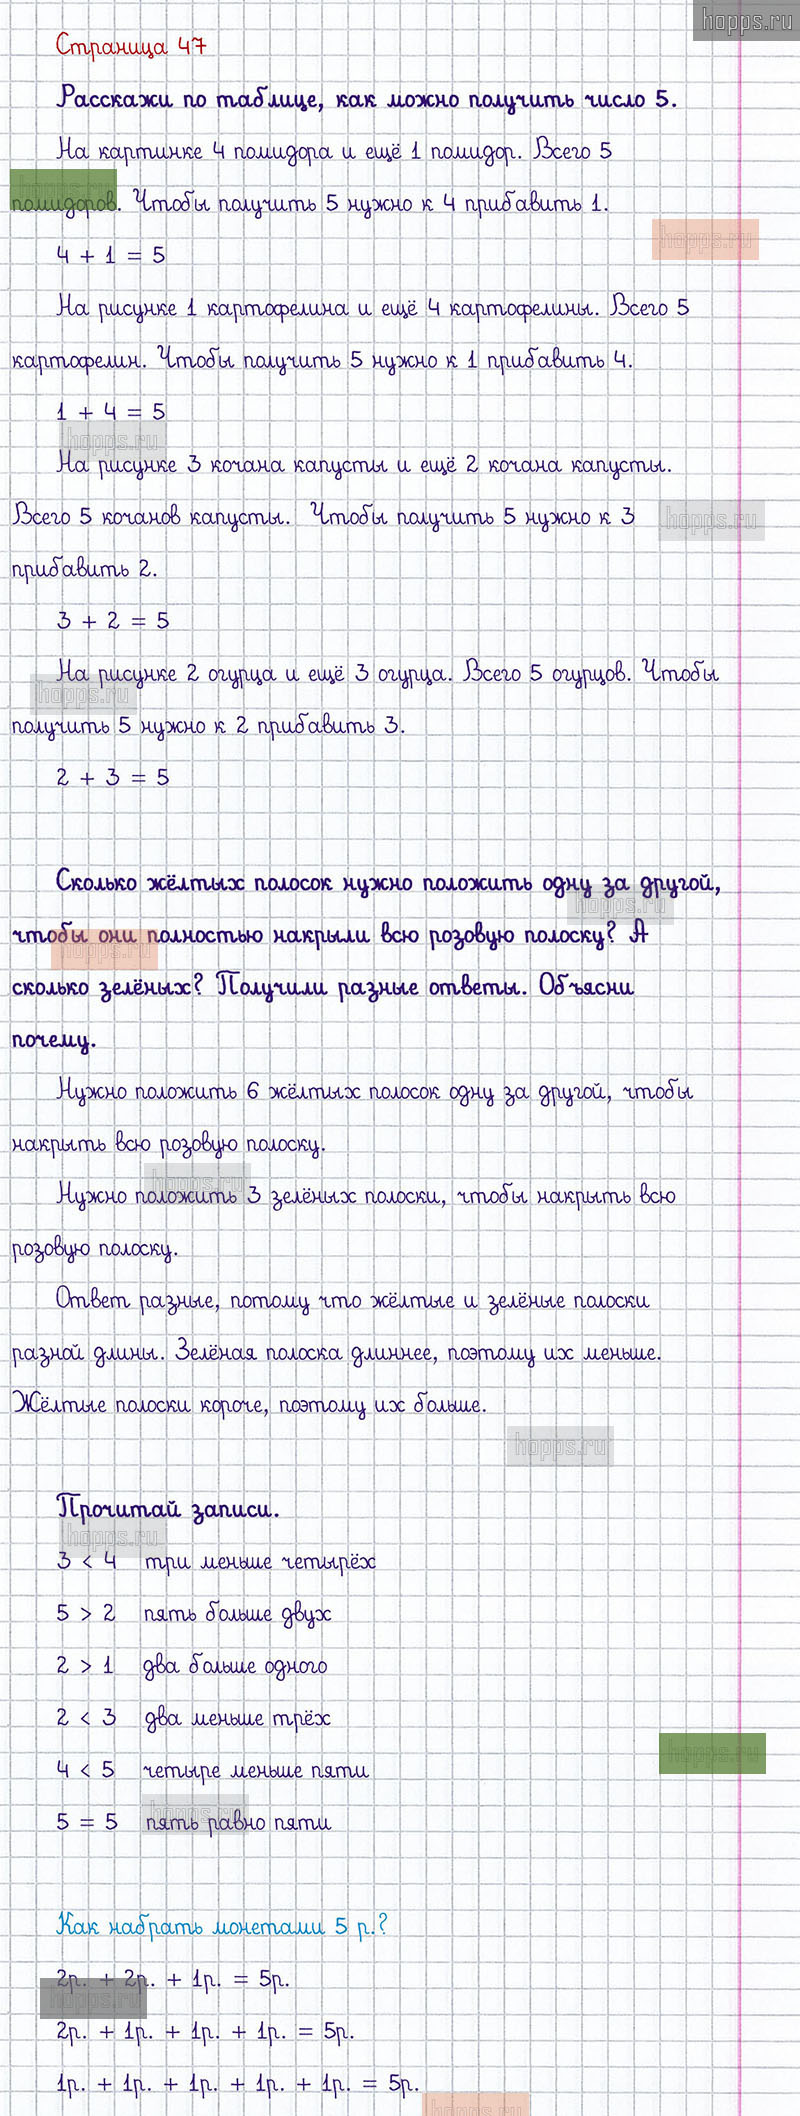 hopps.ru
Страница 47
Расскажи по таблице, как можно получить число 5.
На картинке 4 помидора и ещё 1 помидор. Всего 5
помидоров. Чтобы получить 5 нужно к 4 прибавить 1.
4 + 1 = 5
На рисунке 1 картофелина и ещё 4 картофелины. Всего 5
картофелин. Чтобы получить 5 нужно к 1 прибавить 4.
1 + 4 = 5
На рисунке 3 кочана капусты и ещё 2 кочана капусты.
Всего 5 кочанов капусты. Чтобы получить 5 нужно к 3
прибавить 2.
3 + 2 = 5
На рисунке 2 огурца и ещё 3 огурца. Всего 5 огурцов. Чтобы
получить 5 нужно к 2 прибавить 3.
2 + 3 = 5
Сколько жёлтых полосок нужно положить одну за другой,
чтобы они полностью накрыли всю розовую полоску? А
сколько зелёных? Получили разные ответы. Объясни
почему.
Нужно положить 6 жёлтых полосок одну за другой, чтобы
накрыть всю розовую полоску.
Нужно положить 3 зелёных полоски, чтобы накрыть всю
розовую полоску.
Ответ разные, потому что жёлтые и зелёные полоски
разной длины. Зелёная полоска длиннее, поэтому их меньше.
Жёлтые полоски короче, поэтому их больше.
Прочитай записи.
3 < 4 три меньше четырёх
5 > 2 пять больше двух
2 > 1 два больше одного
2 < 3 два меньше трёх
4 < 5 четыре меньше пяти
5 = 5 пять равно пяти
Как набрать монетами 5 р.?
2р. + 2р. + 1р. = 5р.
2р. + 1р. + 1р. + 1р. = 5р.
1р. + 1р. + 1р. + 1р. + 1р. = 5р.